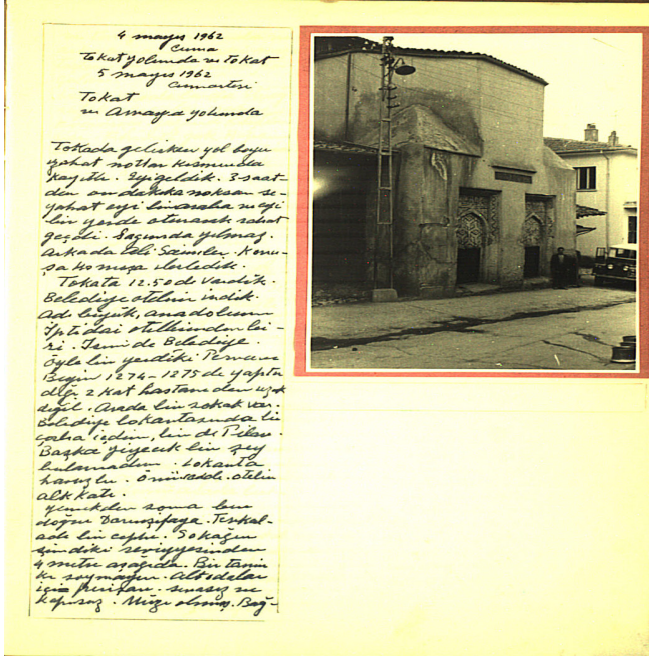 4 mayıs 1962
Cuma
Tokat yolunda ve Tokat
5 mayıs 1962
Cumartesi
Tokat
ve Amasya yolunda
Tokada gelirken yol boyu
seyahat notları kısmında
kayıtlı. İyi geldik. 3 saat-
den on dakka noksan se-
yahat iyi bir araba ve iyi
bir yerde oturarak rahat
geçdi. Yılmaz.
Arkada Konu-
şa konuşa ilerledik.
Tokata 12.50 de vardık.
Belediye oteline indik.
Adı büyük, anadolunun
İptidai otellerinden bi-
ri. İsmi de Belediye.
Öyle bir yerdeki Pervane
Beyin 1274-1275 de yaptır-
dığı 2 kat hastaneden uzak
değil. Arada bir sokak var.
Belediye lokantasında bir
çorba içdim, bir de Pilav.
Başka yiyecek bir şey
bulamadım. Lokanta
havuzlu. otelin
alt katı.
Yemekden sonra ben
doğru Darüşşifaya. Fevkal-
ade bir cephe. Sokağın
şimdiki seviyyesinden
4 metre aşağıda. Bir tamir
ki sormayın. Alt odalar
içi sıvasız ve
kapısız. Müze olmuş. Bağ-